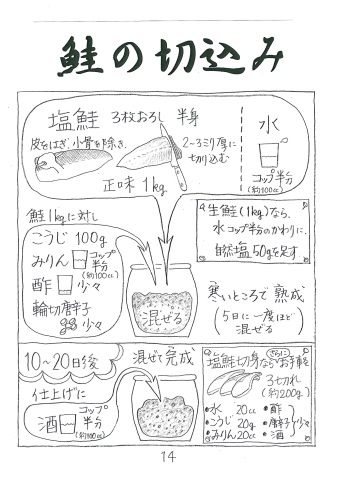 鮭の切込み
塩鮭 3枚おろし 半身
皮をはぎ、小骨を除き、
2~3ミリ厚に
切り込む
正味 1kg
水
コップ半分
(約100cc)
鮭1kgに対し
こうじ 100g
みりん コップ半分
(約100cc)
酢 少々
輪切唐辛子
少々
生鮭(1kg)なら、
水コップ半分のかわりに、
自然塩50gを足す
混ぜる
寒いところで熟成
(5日に一度ほど
混ぜる)
10~20日後
混ぜて完成
仕上げに
酒 コップ半分
(約100cc)
塩鮭切身ならさらにお手軽
3切れ
(約200g)
•水 20cc
•こうじ 20g
•みりん20cc
•酢
•唐辛子
•酒
少々
14